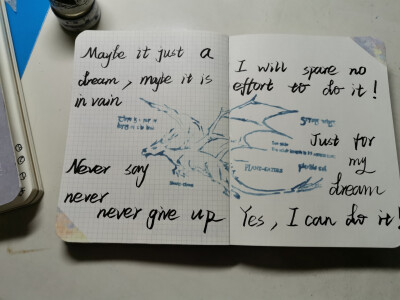 Maybe it just a
dream, maybe it is
in vain
Never say
never
never give up
I will spare no
effort to do it!
Just for
my
dream
Yes, I can do it!